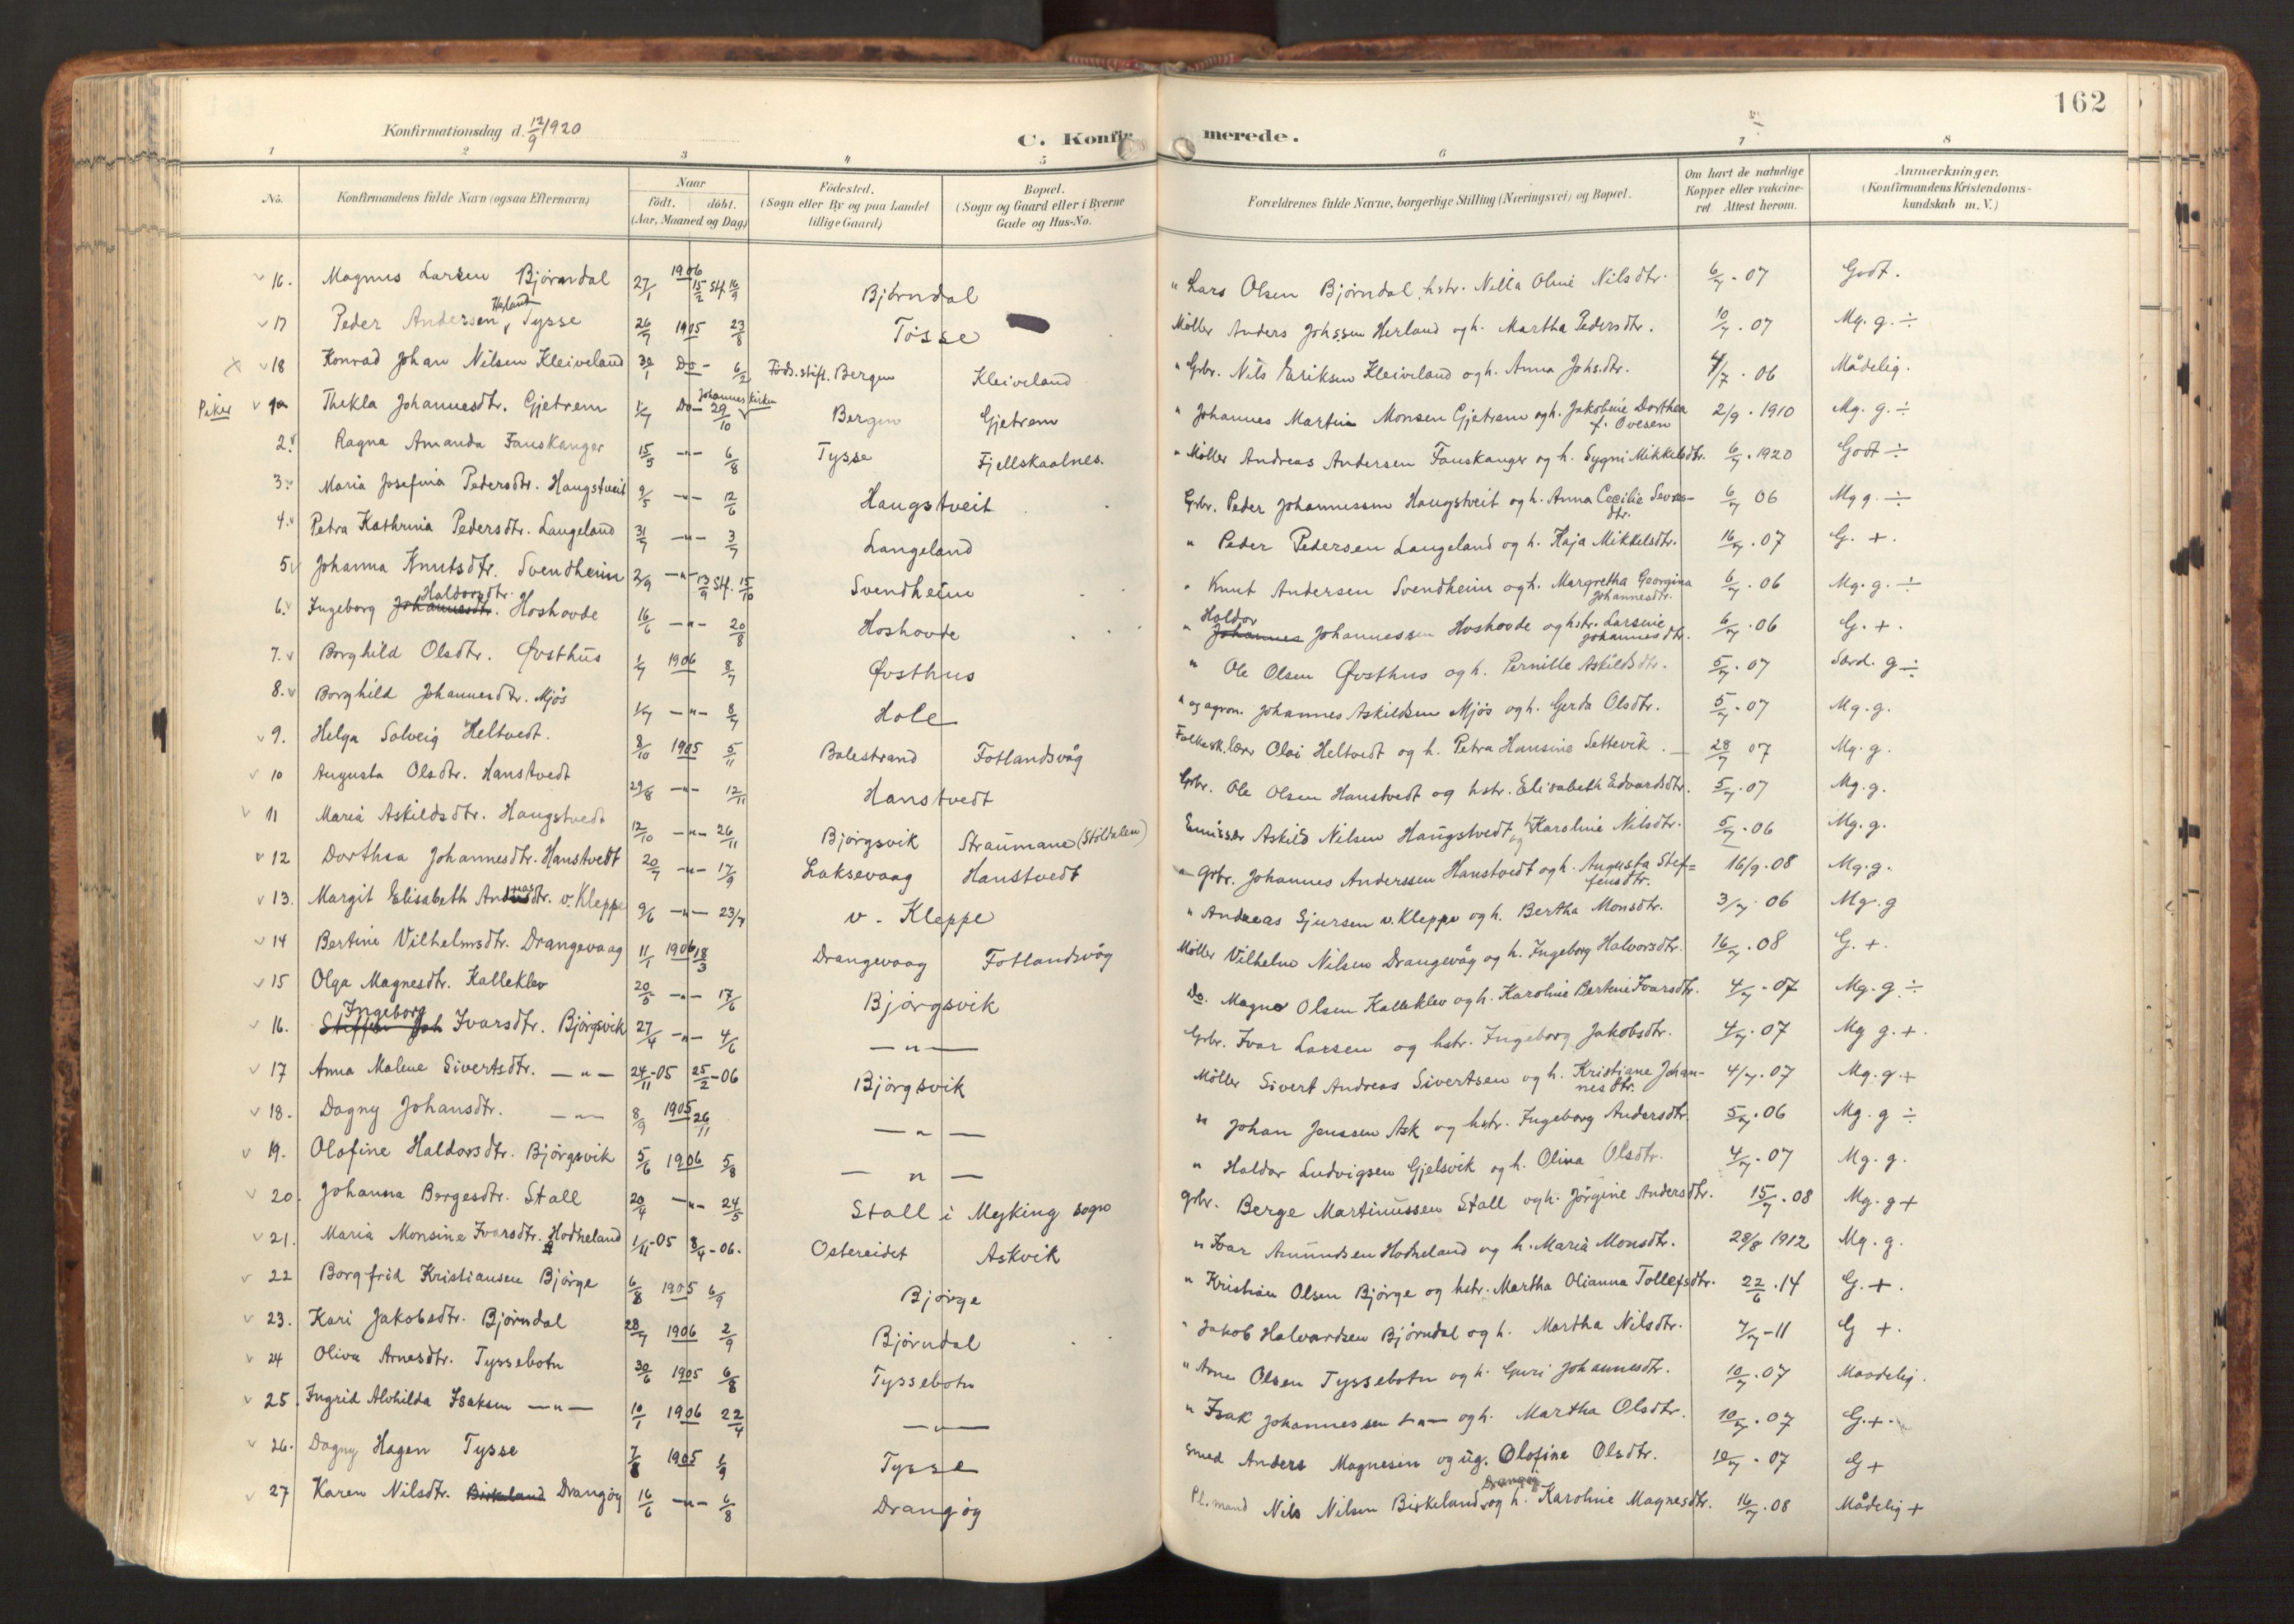 162
Konfirmationsdag d. 12/9 1920
C. Konfirmerede.
1 2 3 4 5 6 7 8
No. Konfirmandens fulde Navn (ogsaa Efternavn) Naar født. døbt. (Aar, Maaned og Dag) Födested. (Sogn eller By og paa Landet tillige Gaard) Bopæl. (Sogn og Gaard eller i Byerne Gade og Hus-No. Forældrenes fulde Navne, borgerlige Stilling (Næringsvei) og Bopæl. Om havt de naturlige Kopper eller vakcineret Attest herom. Anmærkninger. (Konfirmandens Kristendomskundskab m. V.)
16. Magnus Larsen Bjørndal 27/1 1906 15/2 Stf. 16/9 Bjørndal " Lars Olsen Bjørndal, hstr. Nilla Oline Nilsdtr. 6/7 . 07 Godt.
17 Peder Andersen Herland Tysse 26/7 1905 23/8 Tösse Møller Anders Johssen Herland og h. Martha Pedersdtr. 10/7 . 07 Mg. g. ÷
18 Konrad Johan Nilsen Kleiveland 30/1 Do - 6/2 Føds.stift. Bergen Kleiveland " Grbr. Nils Eriksen Kleiveland og h. Anna Johsdtr. 4/7 . 06 Mådelig.
Piker 1. Thekla Johannesdtr. Gjetrem 1/7 Do - Johanneskirken 29/10 Bergen Gjetrem " Johannes Martin Monsen Gjetrem og h. Jakobine Dorthea f. Ovesen 2/9 . 1910 Mg. g. ÷
2. Ragna Amanda Fauskanger 15/5 -"- 6/8 Tysse Fjellskaalnes. " Møller Andreas Andersen Fauskanger og h. Sygni Mikkelsdtr. 6/7 . 1920 Godt ÷
3. Maria Josefina Pedersdtr. Haugstveit 9/5 -"- 12/6 Haugstveit Grbr. Peder Johannessen Haugstveit og h. Anna Cecilie Sevrsdtr. 6/7 06 Mg g. ÷
4. Petra Kathrina Pedersdtr. Langeland 31/7 -"- 3/7 Langeland " Peder Pedersen Langeland og h. Kaja Mikkelsdtr. 16/7 . 07 G. +.
5. Johanna Knutsdtr. Svendheim 2/9 -"- 13/9 Stf. 15/10 Svendheim " Knut Andersen Svendheim og h. Margretha Georgina Johannesdtr. 6/7 . 06 Mg. g. ÷
6. Ingeborg Johannesdtr. Haldorsdtr. Hoshovde 16/6 -"- 20/8 Hoshovde " Johannes Haldor Johannessen Hoshovde og hstr. Larsine Johannesdtr. 6/7 . 06 G. +.
7. Borghild Olsdtr. Øvsthus 1/7 1906 8/7 Øvsthus " Ole Olsen Øvsthus og h. Pernille Askildsdtr. 5/7 . 07 Særd. g ÷
8. Borghild Johannesdtr. Mjös 1/7 -"- 8/7 Hole " og agron. Johannes Askildsen Mjös og h. Gerda Olsdtr. 5/7 . 07 Mg. g.
9. Helga Solveig Heltvedt. 8/10 1905 5/11 Balestrand Fotlandsvåg Folkesk.lærer Olai Heltvedt og h. Petra Hansine Settevik. 28/7 07 Mg. g.
10 Augusta Olsdtr. Hanstvedt 29/8 -"- 12/11 Hanstvedt Grbr. Ole Olsen Hanstvedt og hstr. Elisabeth Edvardsdtr. 5/7 . 07 Mg. g.
11 Maria Askildsdtr. Haugstvedt 12/10 -"- 26/11 Bjørgsvik Straumane (Stöldalen) Emissær Askild Nilsen Haugstvedt og h. Karoline Nilsdtr. 5/7 . 06 Mg. g.
12 Dorthea Johannesdtr. Hanstvedt 20/7 -"- 17/9 Laksevaag Hanstvedt " Grbr. Johannes Anderssen Hanstvedt og h. Augusta Steffensdtr. 16/9 . 08 Mg. g.
13. Margit Elisabeth Andreasdtr. v. Kleppe 9/6 -"- 23/7 v. Kleppe " Andreas Sjursen v. Kleppe og h. Bertha Monsdtr. 3/7 . 06 Mg. g
14 Bertine Vilhelmsdtr. Drangevaag 11/1 1906 18/3 Drangevaag Fotlandsvåg Møller Vilhelm Nilsen Drangevåg og h. Ingeborg Halvorsdtr. 16/7 . 08 G. +.
15 Olga Magnesdtr. Kalleklev 20/5 -"- 17/6 Bjørgsvik Do. Magne Olsen Kalleklev og h. Karoline Bertine Ivarsdtr. 4/7 . 07 Mg. g ÷
16. Steffen Joh Ingeborg Ivarsdtr. Bjørgsvik 27/4 -"- 4/6 -"- Grbr. Ivar Larsen og hstr. Ingeborg Jakobsdtr. 4/7 . 07 Mg g. +.
17 Anna Malene Sivertsdtr. -"- 24/11-05 25/2-06 Bjørgsvik Møller Sivert Andreas Sivertsen og h. Kristiane Johannesdtr. 4/7 . 07 Mg. g. +
18. Dagny Johansdtr. -"- 8/9 1905 26/11 -"- " Johan Jenssen Ask og hstr. Ingeborg Andersdtr. 5/7 . 06 Mg. g ÷
19. Olofine Haldorsdtr. Bjørgsvik 5/6 1906 5/8 -"- " Haldor Ludvigsen Gjelsvik og h. Olina Olsdtr. 4/7 . 07 Mg. g.
20. Johanna Bergesdtr. Stall 20/4 -"- 24/5 Stall i Myking sogn Grbr. Berge Martinussen Stall og h. Jörgine Andersdtr. 15/7 . 08 Mg. g +
21. Maria Monsine Ivarsdtr. Hodneland 1/11-05 8/4-06. Ostereidet Askvik " Ivar Amundsen Hodneland og h. Maria Monsdtr. 28/8 1912 Mg. g.
22 Borgfrid Kristiansen Bjørge 6/8 1905 6/9 Bjørge " Kristian Olsen Bjørge og hstr. Martha Olianna Tollefsdtr. 22/6 . 14 G. +.
23. Kari Jakobsdtr. Bjørndal 28/7 1906 2/9 Bjørndal " Jakob Halvardsen Bjørndal og h. Martha Nilsdtr. 7/7 - 11 G +.
24 Oliva Arnesdtr. Tyssebotn 30/6 1905 6/8 Tyssebotn " Arne Olsen Tyssebotn og h. Guri Johannesdtr. 10/7 . 07 Maadelig.
25. Ingrid Alvhilda Isaksen -"- 10/1 1906 22/4 -"- " Isak Johannessen -"- og h. Martha Olsdtr. 10/7 . 07 G. +.
26. Dagny Hagen Tysse 7/8 1905 1/9 Tysse Smed Anders Magnesen og ug. Olofine Olsdtr. 10/7 . 07 G +
27 Karen Nilsdtr. Birkeland Drangöy 16/6 -"- 6/8 Drangöy Pl.mand Nils Nilsen Birkeland Drangöy og h. Karoline Magnesdtr. 16/7 . 08 Mådelig +